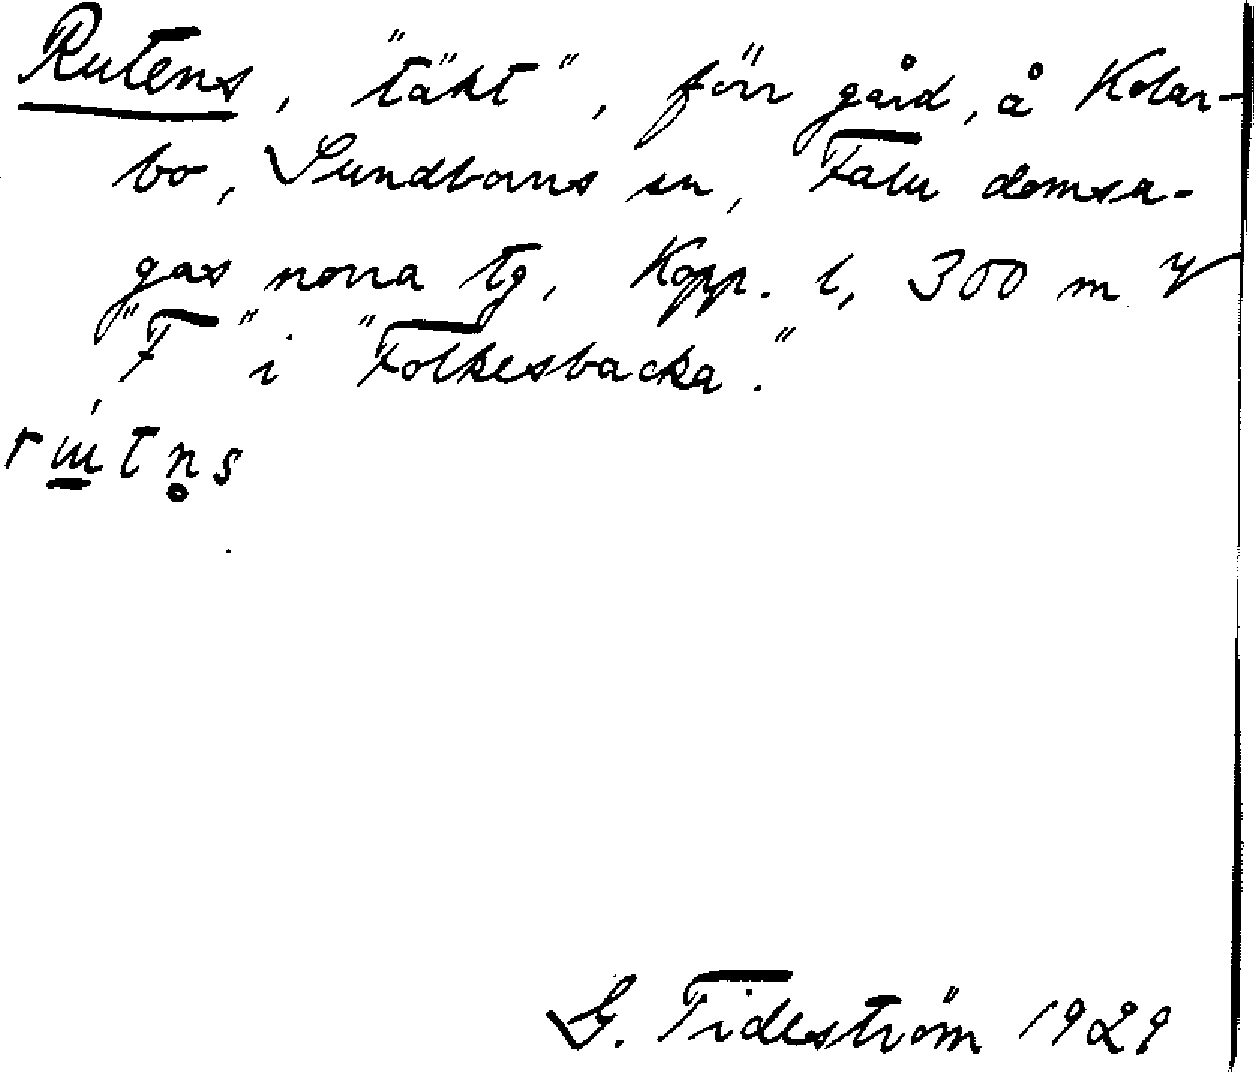 Rutens, "täkt", förr gård, å Kolar-
bo, Sundborns sn, Falu domsa-
gas norra tg, Kopp. l, 300 m V
"F" i "Folkesbacka."
G. Tideström 1929